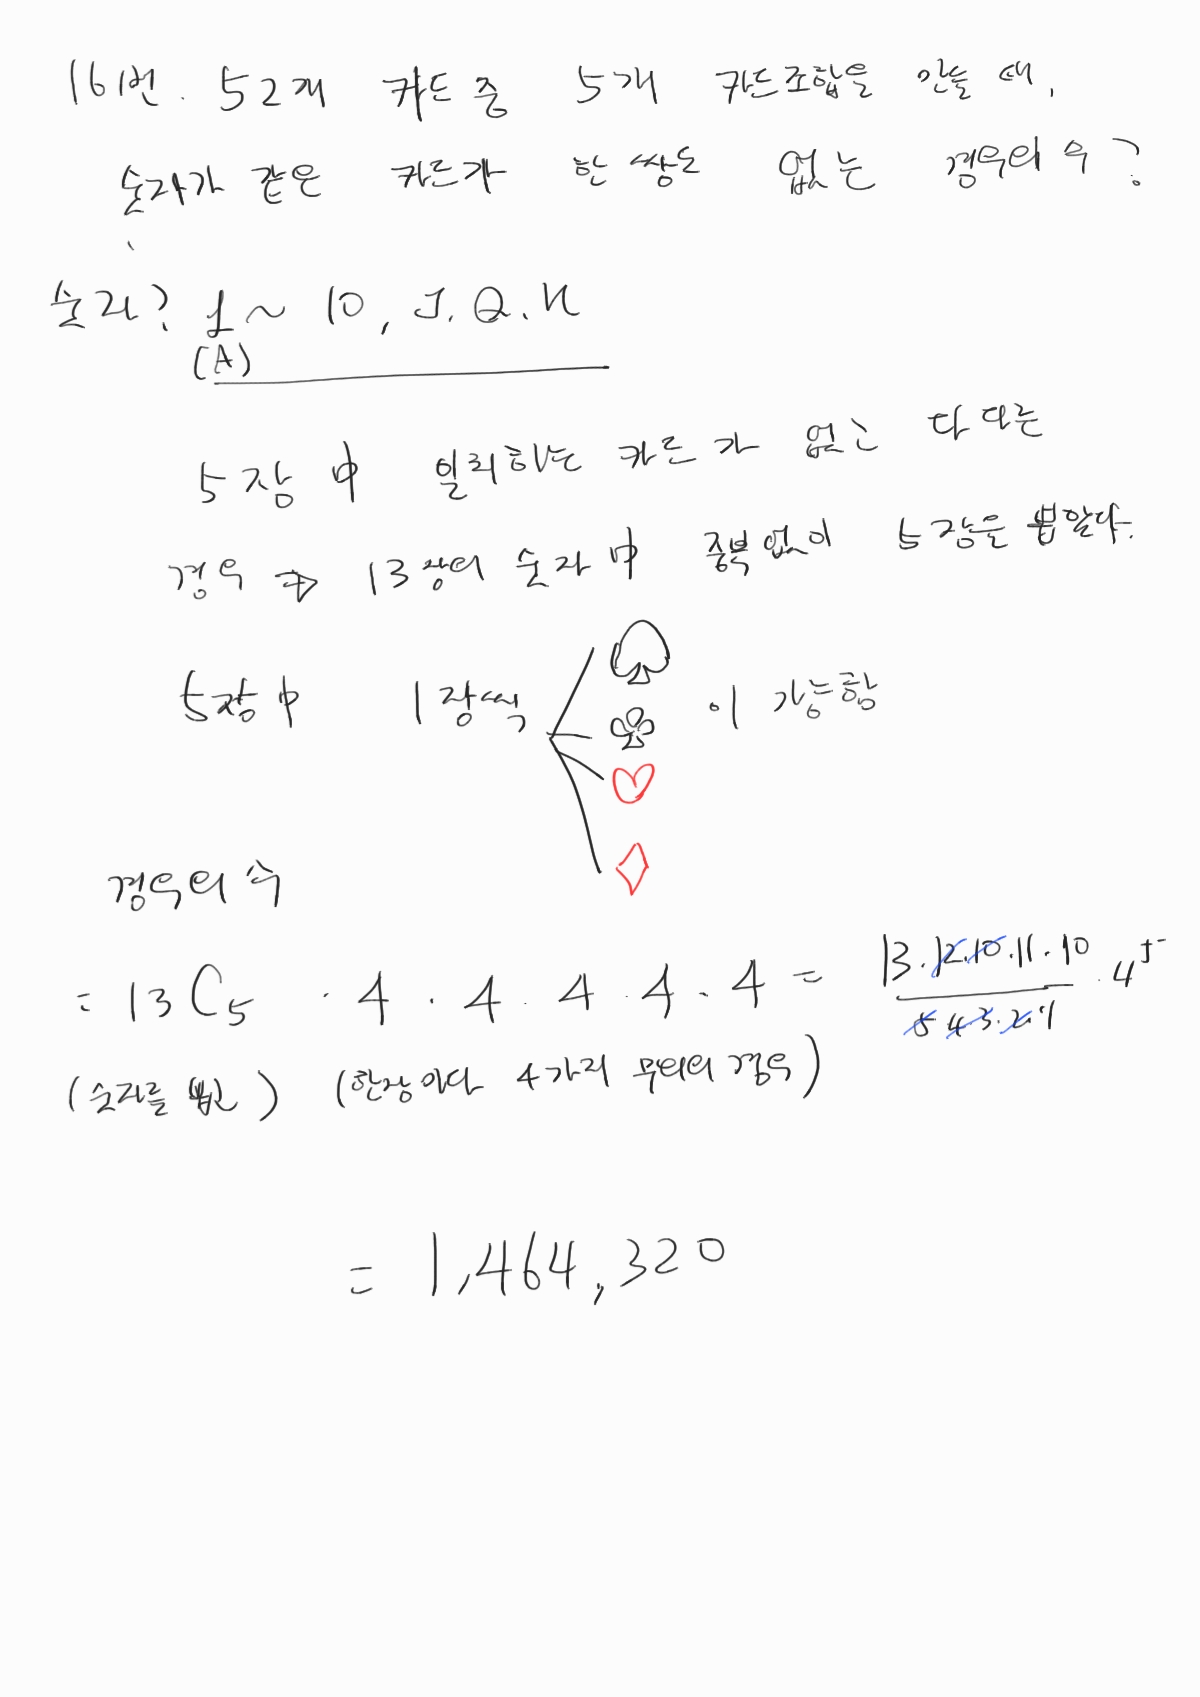 161번. 52개 카드 중 5개 카드조합을 만들 때,
숫자가 같은 카드가 한 쌍도 없는 경우의 수?
숫자? 1 ~ 10, J. Q. K
(A)
5장 中 일치하는 카드가 없고 다 다른
경우 ⇒ 13장의 숫자 中 중복없이 5장을 뽑았다.
5장 中 1장씩 ♤ ♧ ♡ ♢ 이 가능함
경우의 수
= 13C5 · 4 · 4 · 4 · 4 · 4 = 13·12·10·11·10 / 5 4·3·2·1 · 4^5
(숫자를 뽑는) (한장마다 4가지 무늬의 경우)
= 1,464,320